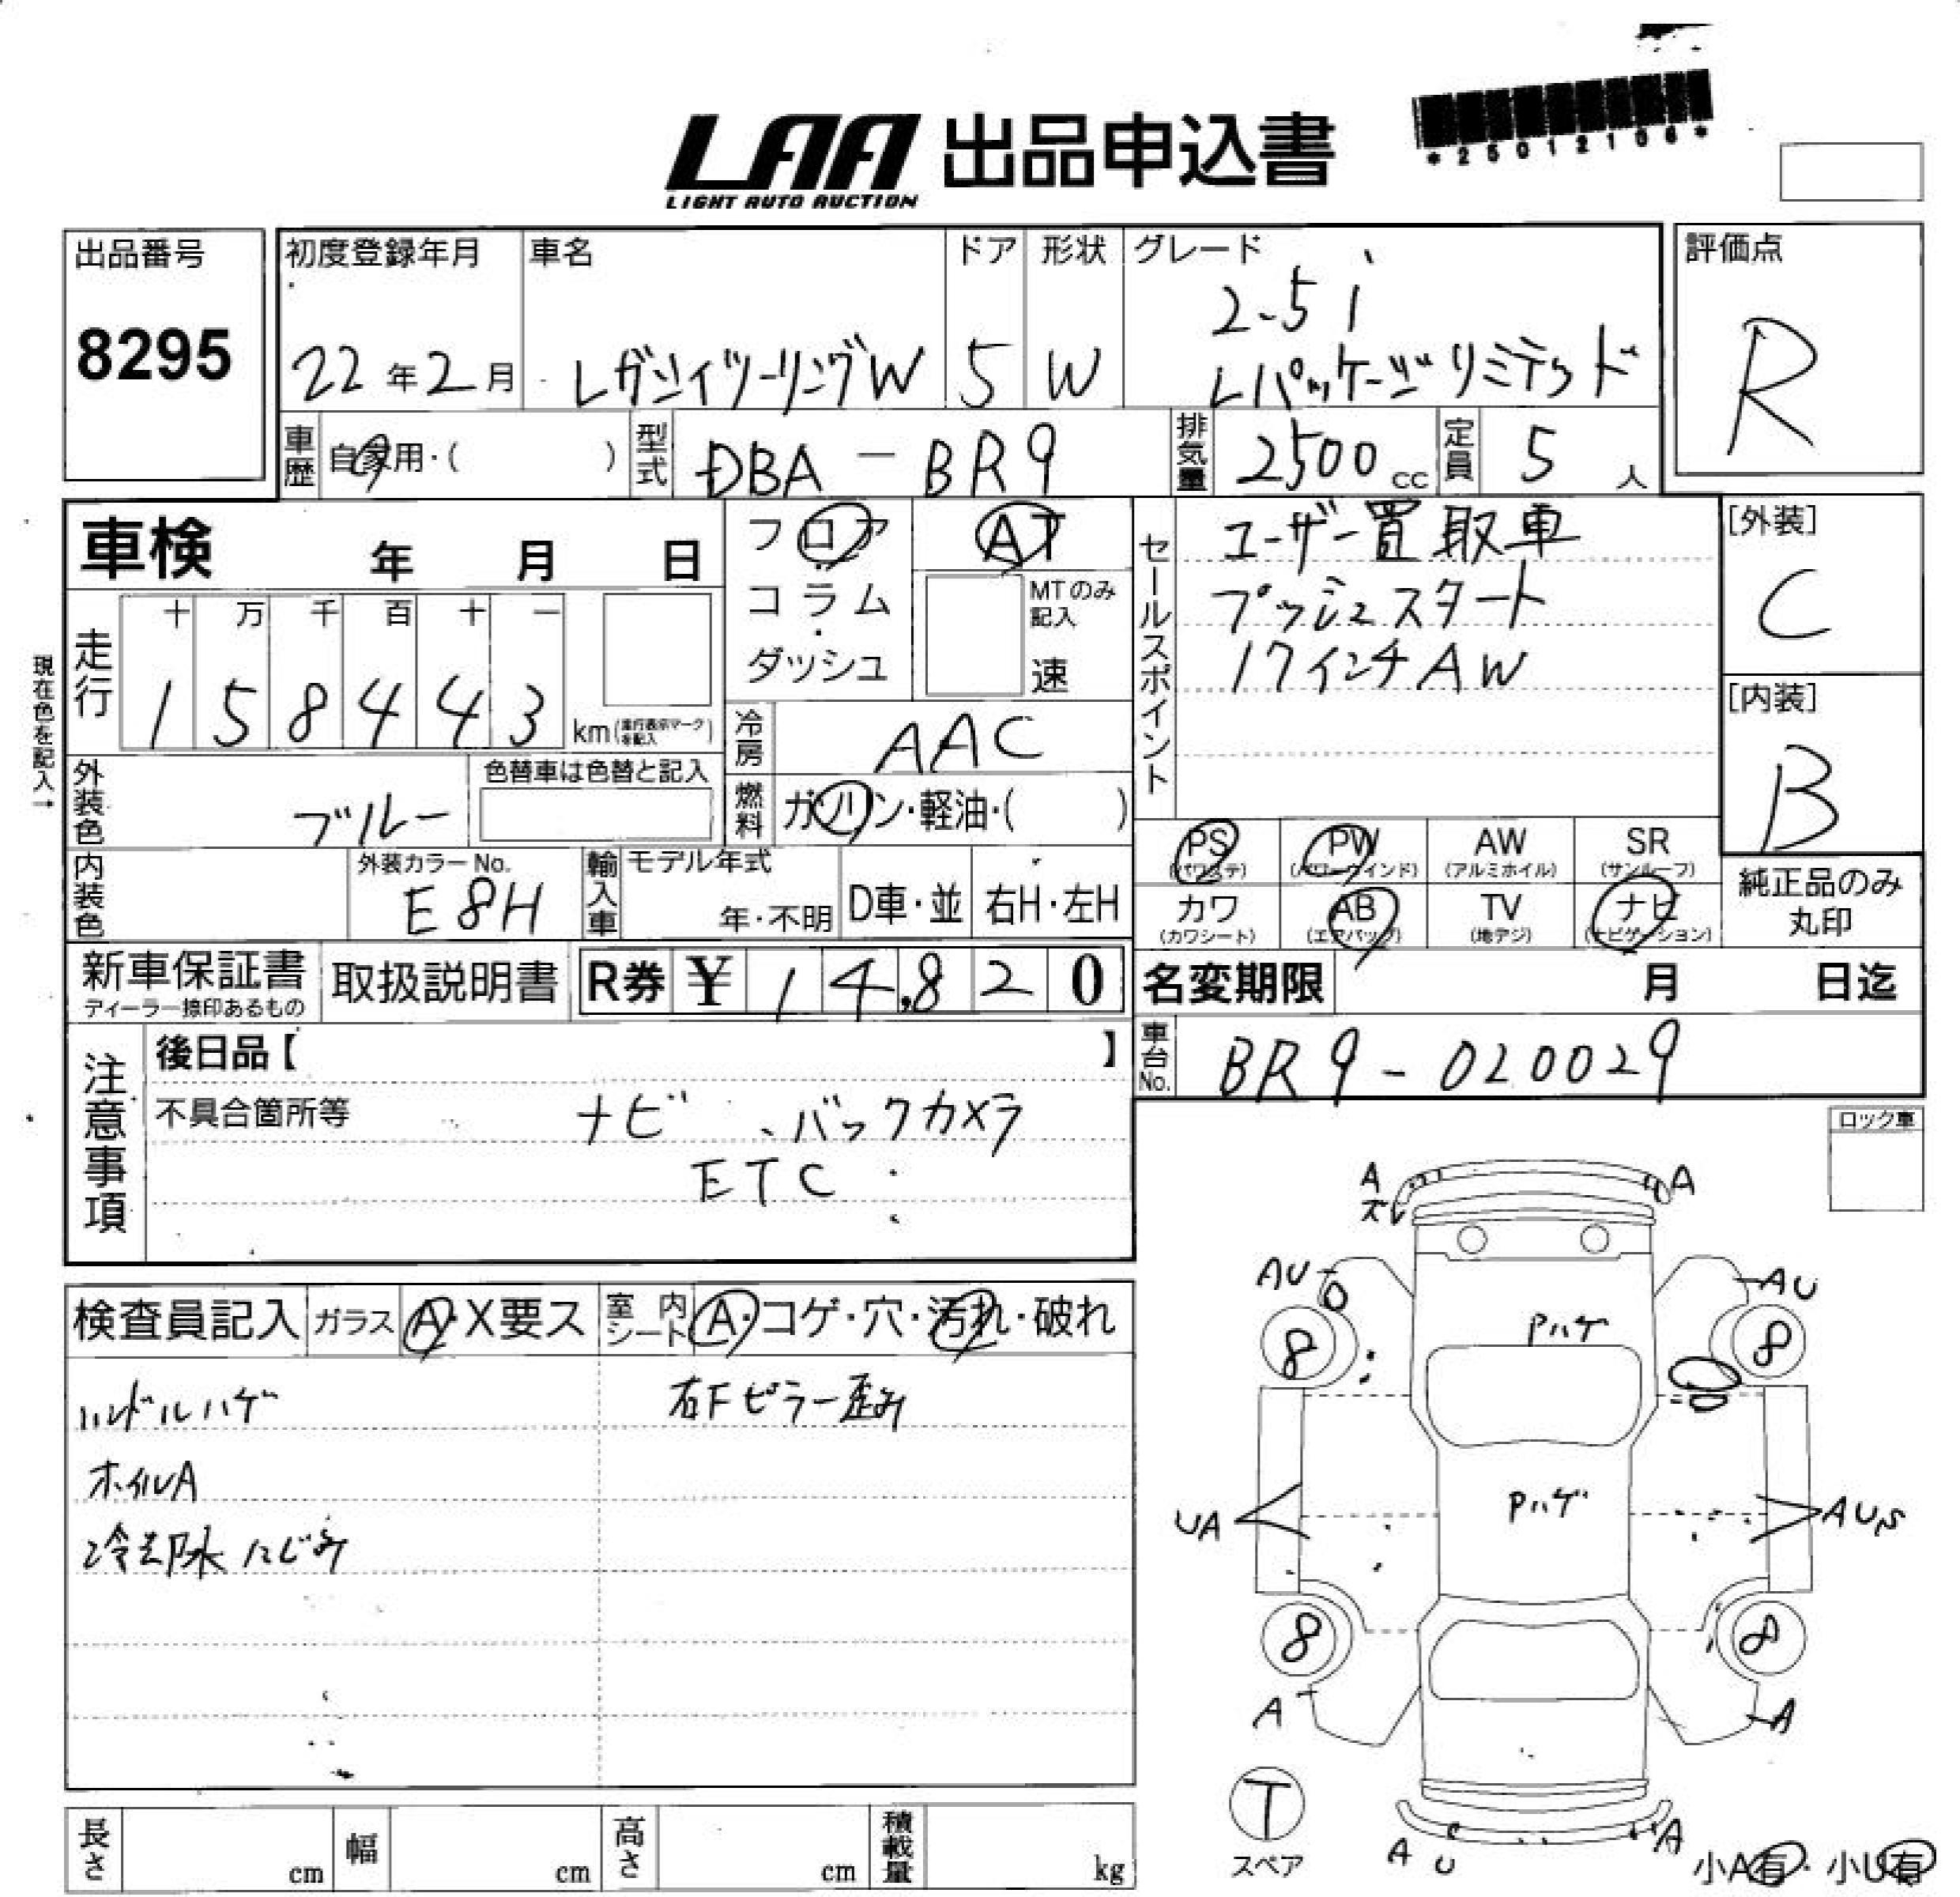 LAA 出品申込書
LIGHT AUTO AUCTION
*25012106*
出品番号
8295
初度登録年月
22年2月
車名
レガシィツーリングW
ドア
5
形状
W
グレード
2.5 i
Lパッケージリミテッド
評価点
R
車歴
自家用・( )
型式
DBA-BR9
排気量
2500 cc
定員
5人
車検 年 月 日
フロア
コラム
・
ダッシュ
AT
MTのみ
記入
速
セールスポイント
ユーザー買取車
プッシュスタート
17インチAW
[外装]
C
[内装]
B
現在色を記入→
走行
十 万 千 百 十 一
1 5 8 4 4 3
km (走行表示マークを記入)
冷房
AAC
外装色
ブルー
色替車は色替と記入
燃料
ガソリン・軽油・( )
内装色
外装カラーNo.
E8H
輸入車
モデル年式
年・不明
D車・並
右H・左H
PS
(パワステ)
PW
(パワーウインド)
AW
(アルミホイル)
SR
(サンルーフ)
カワ
(カワシート)
AB
(エアバッグ)
TV
(地デジ)
ナビ
(ナビゲーション)
純正品のみ
丸印
新車保証書
ディーラー捺印あるもの
取扱説明書
R券 ¥ 14,820
名変期限 月 日迄
車台No.
BR9-020029
注意事項
後日品【 】
不具合箇所等
ナビ、バックカメラ
ETC
ロック車
検査員記入
ガラス A・X要ス
室内シート A・コゲ・穴・汚れ・破れ
ハンドルハゲ
右Fピラー歪み
ホイルA
冷却水にじみ
A
ズレ
A
AU
AU
8
8
Pハゲ
Pハゲ
UA
AUS
8
8
A
A
T
スペア
A U
A
小A有・小U有
長さ cm
幅 cm
高さ cm
積載量 kg